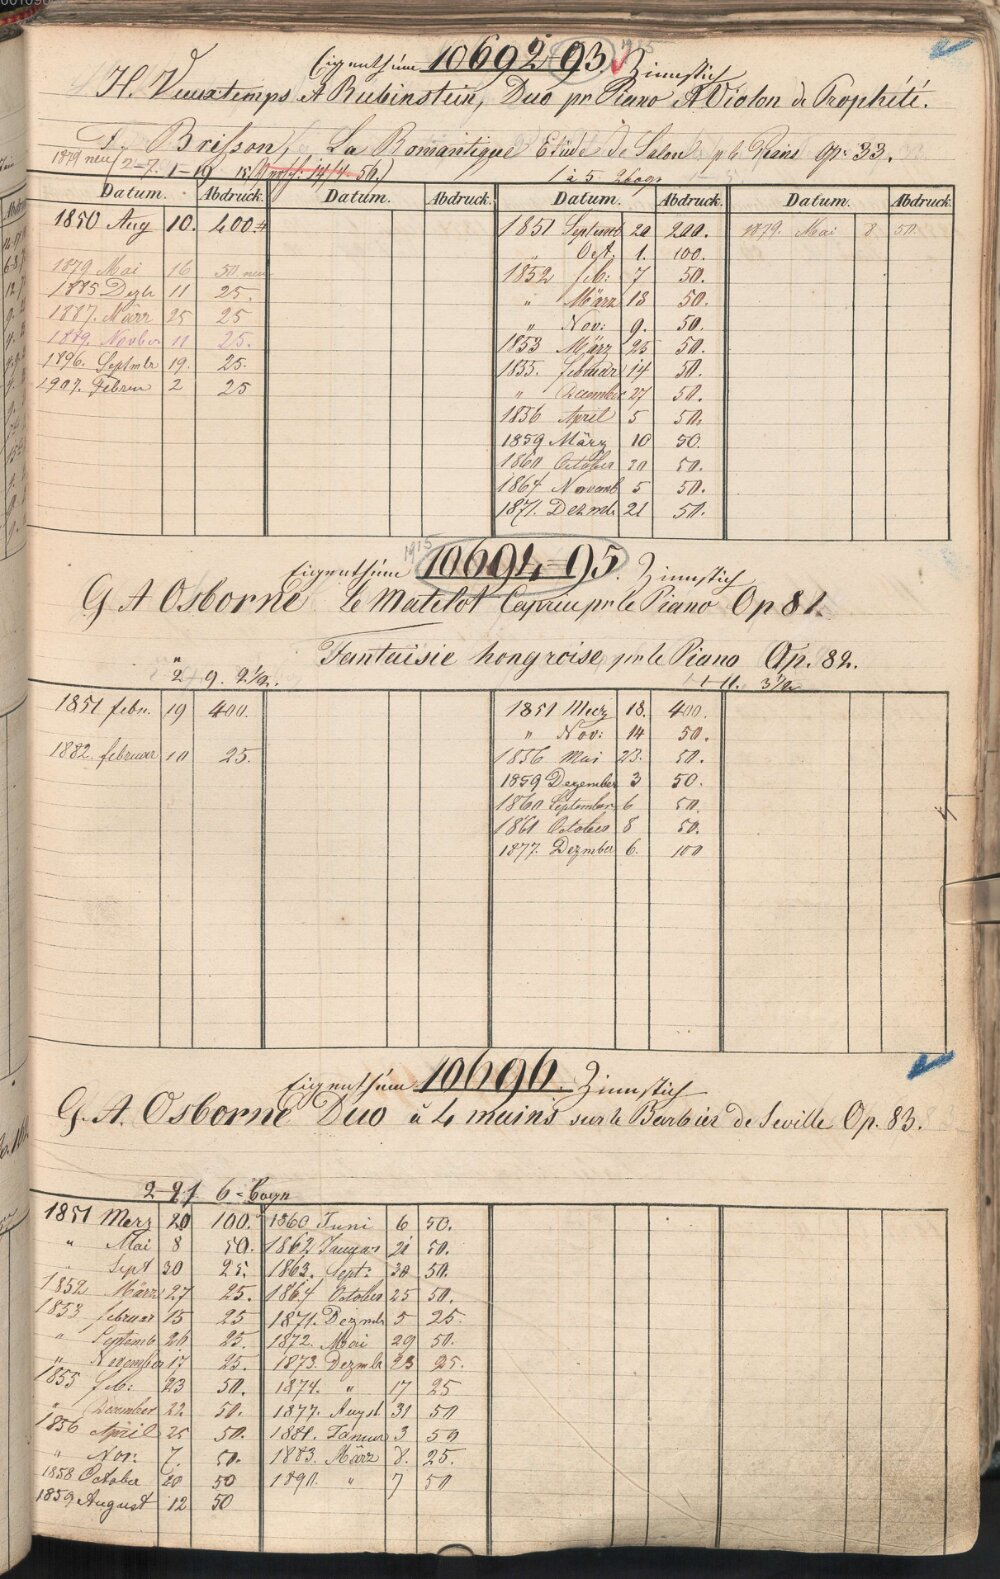 Eigenthüm 10692-93. Zinnstich
H. Vieuxtemps, A Rubinstein, Duo pr Piano & Violon de Prophété.
F. Brisson, La Romantique Etüde de Salon p le Piano Op. 33.
1879 neu (2-7. 1-19
1 à 5 2 bogn
Datum. Abdruck. Datum. Abdruck. Datum. Abdruck. Datum. Abdruck.
1850 Aug 10. 400.
1879 Mai 16 50 neu
1885 Dezb 11 25.
1887. März 25 25
1889. Novber 11 25.
1896. Septmbr 19. 25.
1907. Februa 2 25
1851 Septemb 20 200.
" Oct. 1. 100.
1852 feb: 7 50.
" März 13 50.
" Nov: 9. 50.
1853 März 25 50.
1855. februar 14 50.
" December 27 50.
1856 April 5 50.
1859 März 10 50.
1860 October 30 50.
1864 Novemb 5 50.
1871. Dezmb 21 50.
1879. Mai 8 50.
1915
Eigenthüm 10694-95. Zinnstich
G A Osborne Le Matelot Caprice pr le Piano Op 81.
Fantaisie hongroise pr le Piano Op. 82.
2-9. 2½.
1-11. 3½
1851 febr. 19 400.
1882. februar 10 25.
1851 Merz 18. 400.
" Nov: 14 50.
1856 Mai 23. 50.
1859 Dezember 3 50.
1860 September 6 50.
1861 October 8 50.
1877. Dezmber 6. 100
Eigenthüm 10696. Zinnstich
G. A. Osborne Duo à 4 mains sur le Barbier de Seville Op. 83.
2-21 6-bogn
1851 Merz 20 100.
" Mai 8 50.
" Sept 30 25.
1852 März 27 25.
1853 februar 15 25
" Septemb 26 25.
" November 17 25.
1855 feb: 23 50.
" December 22. 50.
1856 April 25 50.
" Nov: 7. 50.
1858 October 20 50
1859 August 12 50
1860 Juni 6 50.
1862 Januar 21 50.
1863. Sept: 30 50.
1864 October 25 50.
1871. Dezmb 5 25.
1872. Mai 29 50.
1873. Dezmb 23 25.
1874. " 17 25
1877. Augst 31 50
1881. Januar 3 50
1883. März 8. 25.
1890. " 7 50